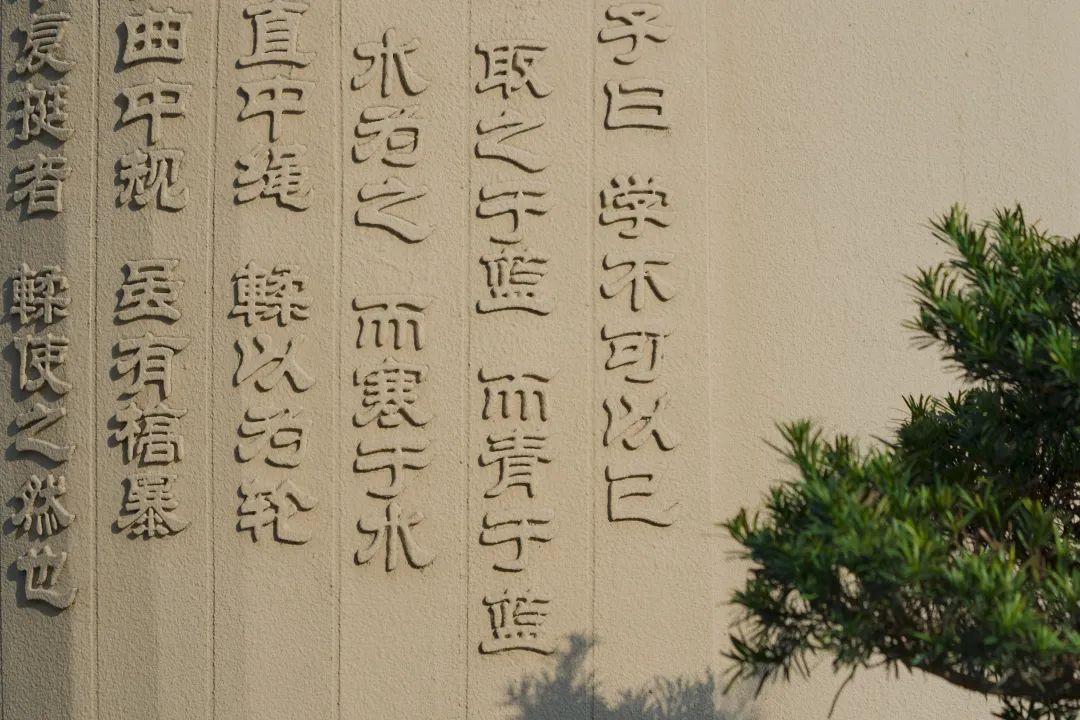 子曰 学不可以已
取之于蓝 而青于蓝
水为之 而寒于水
直中绳 輮以为轮
曲中规 虽有槁暴
复挺者 輮使之然也